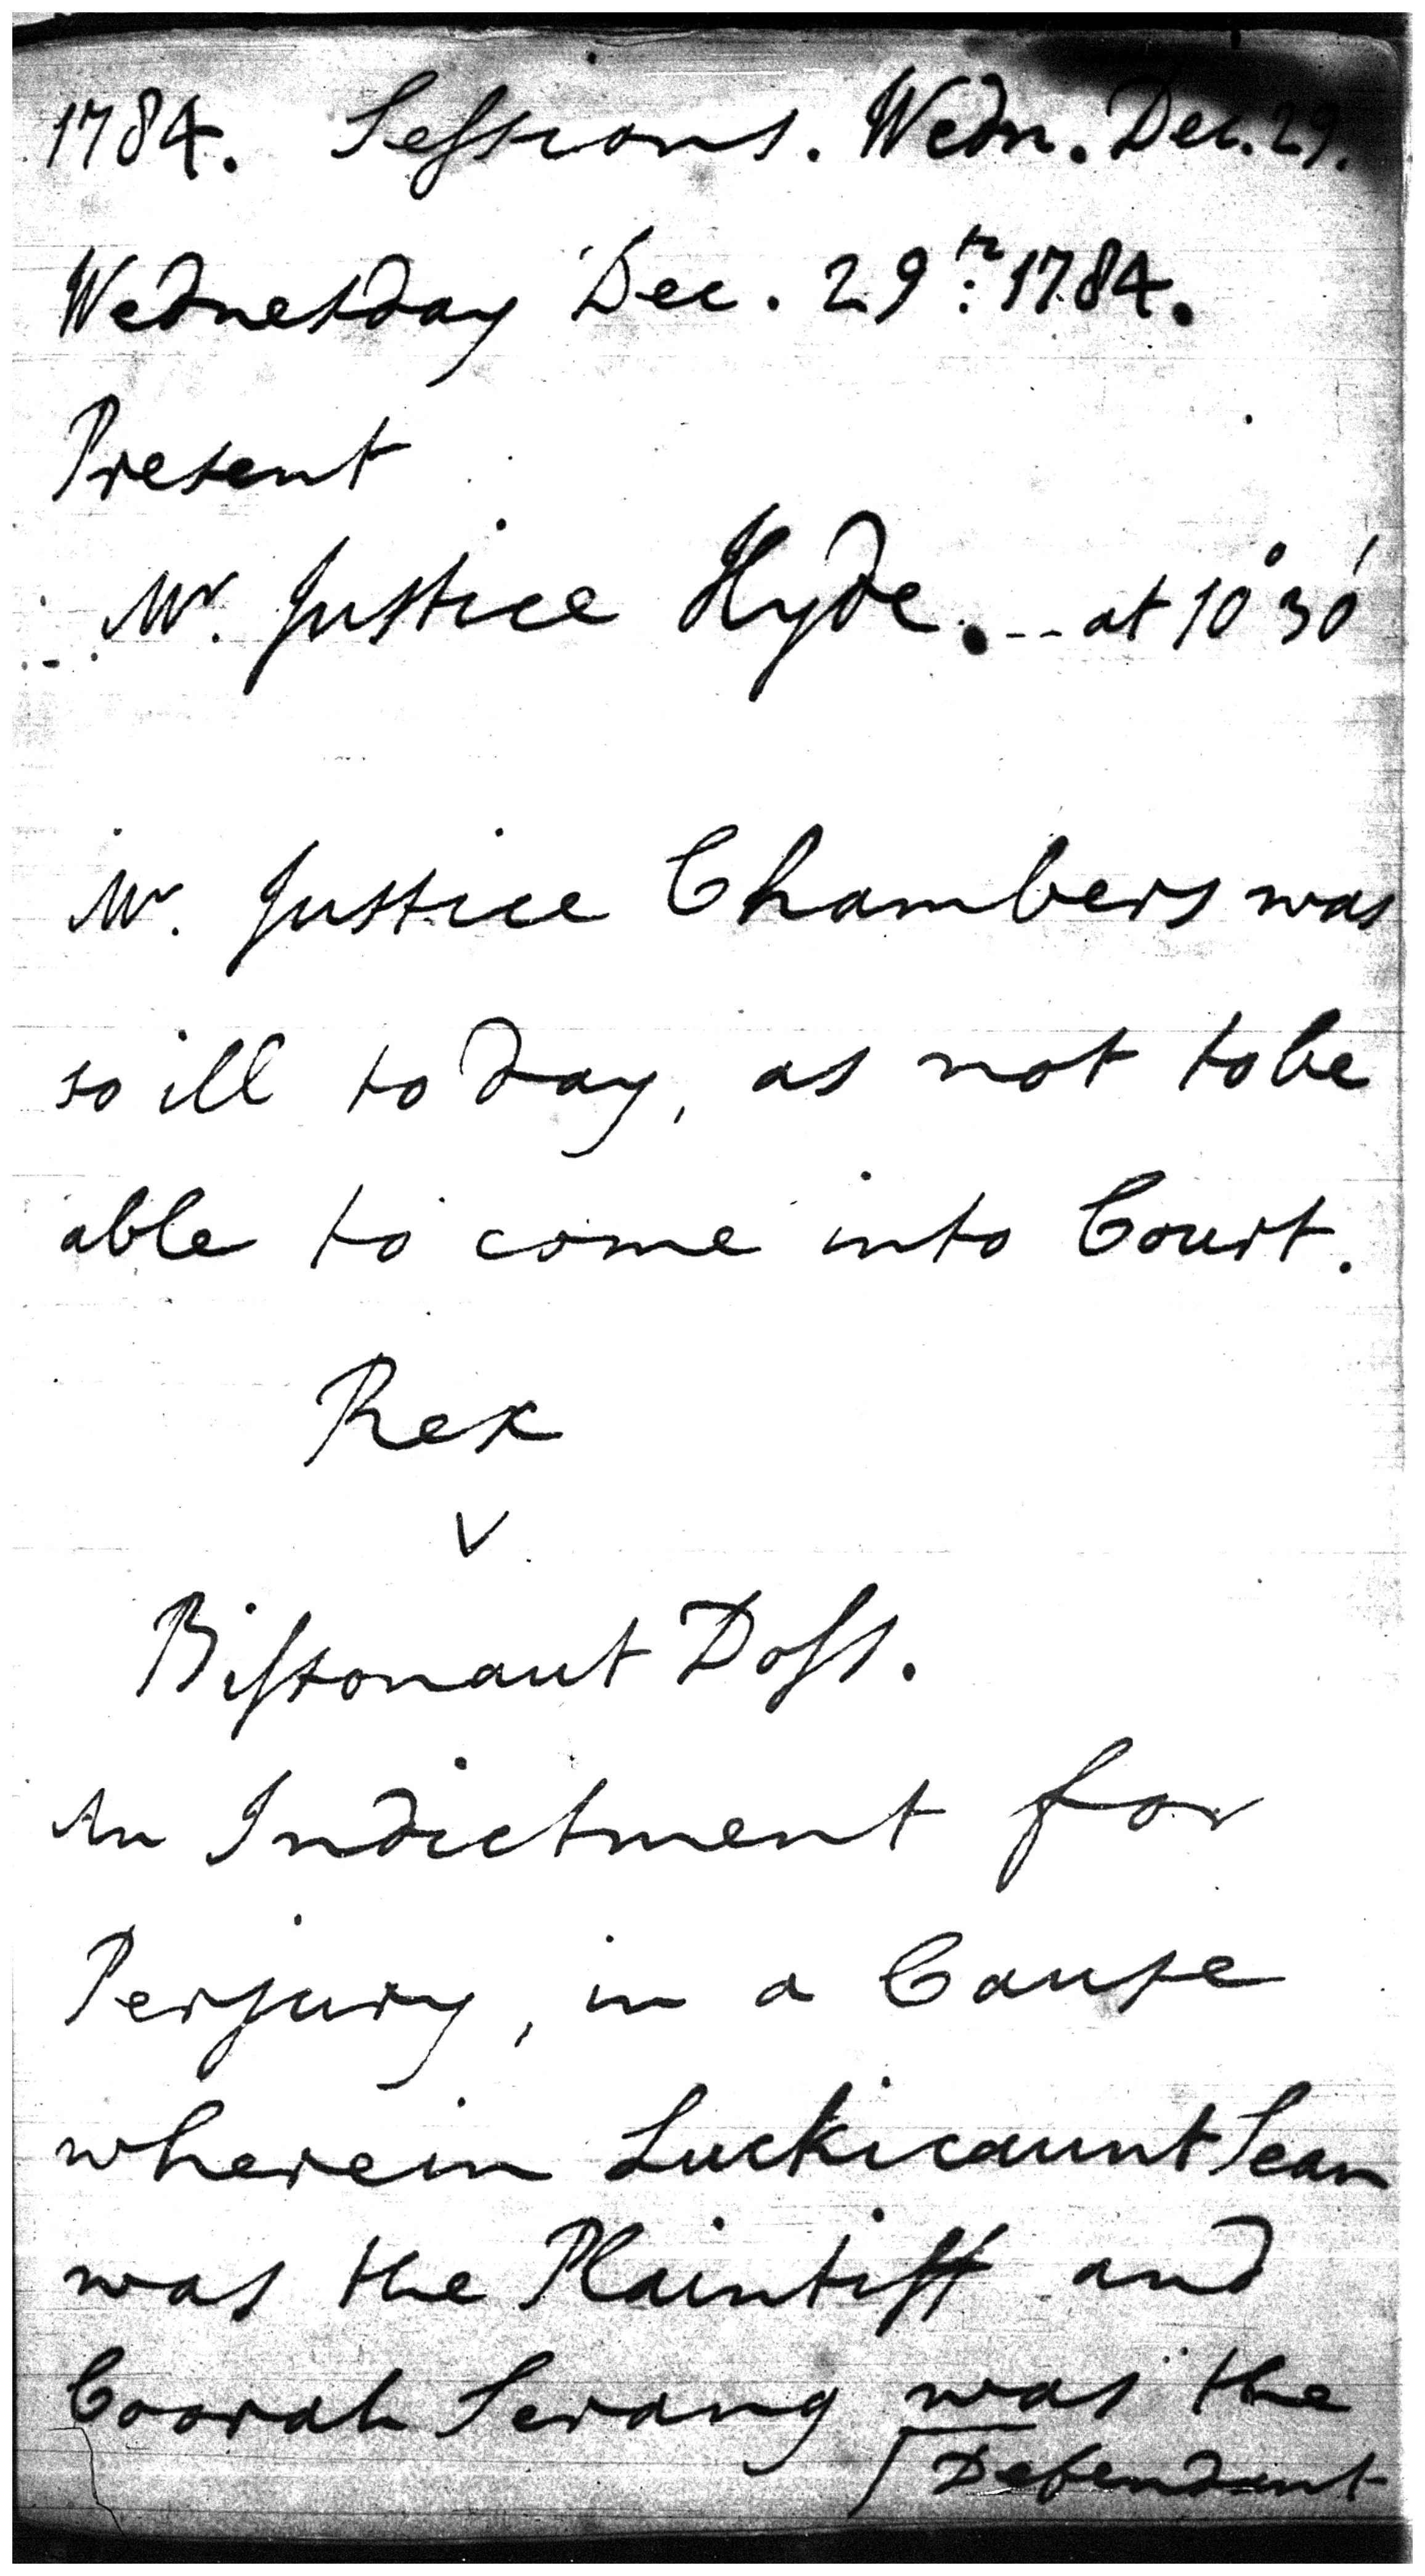 1784. Sessions. Wedn. Dec. 29.
Wednesday Dec. 29th. 1784.
Present
Mr. Justice Hyde. --- at 10° 30'
Mr. Justice Chambers was
so ill to day, as not to be
able to come into Court.
Rex
v
Bissonaut Doss.
An Indictment for
Perjury, in a Cause
wherein Luckicaunt Sean
was the Plaintiff and
Coorah Serang was the
Defendant